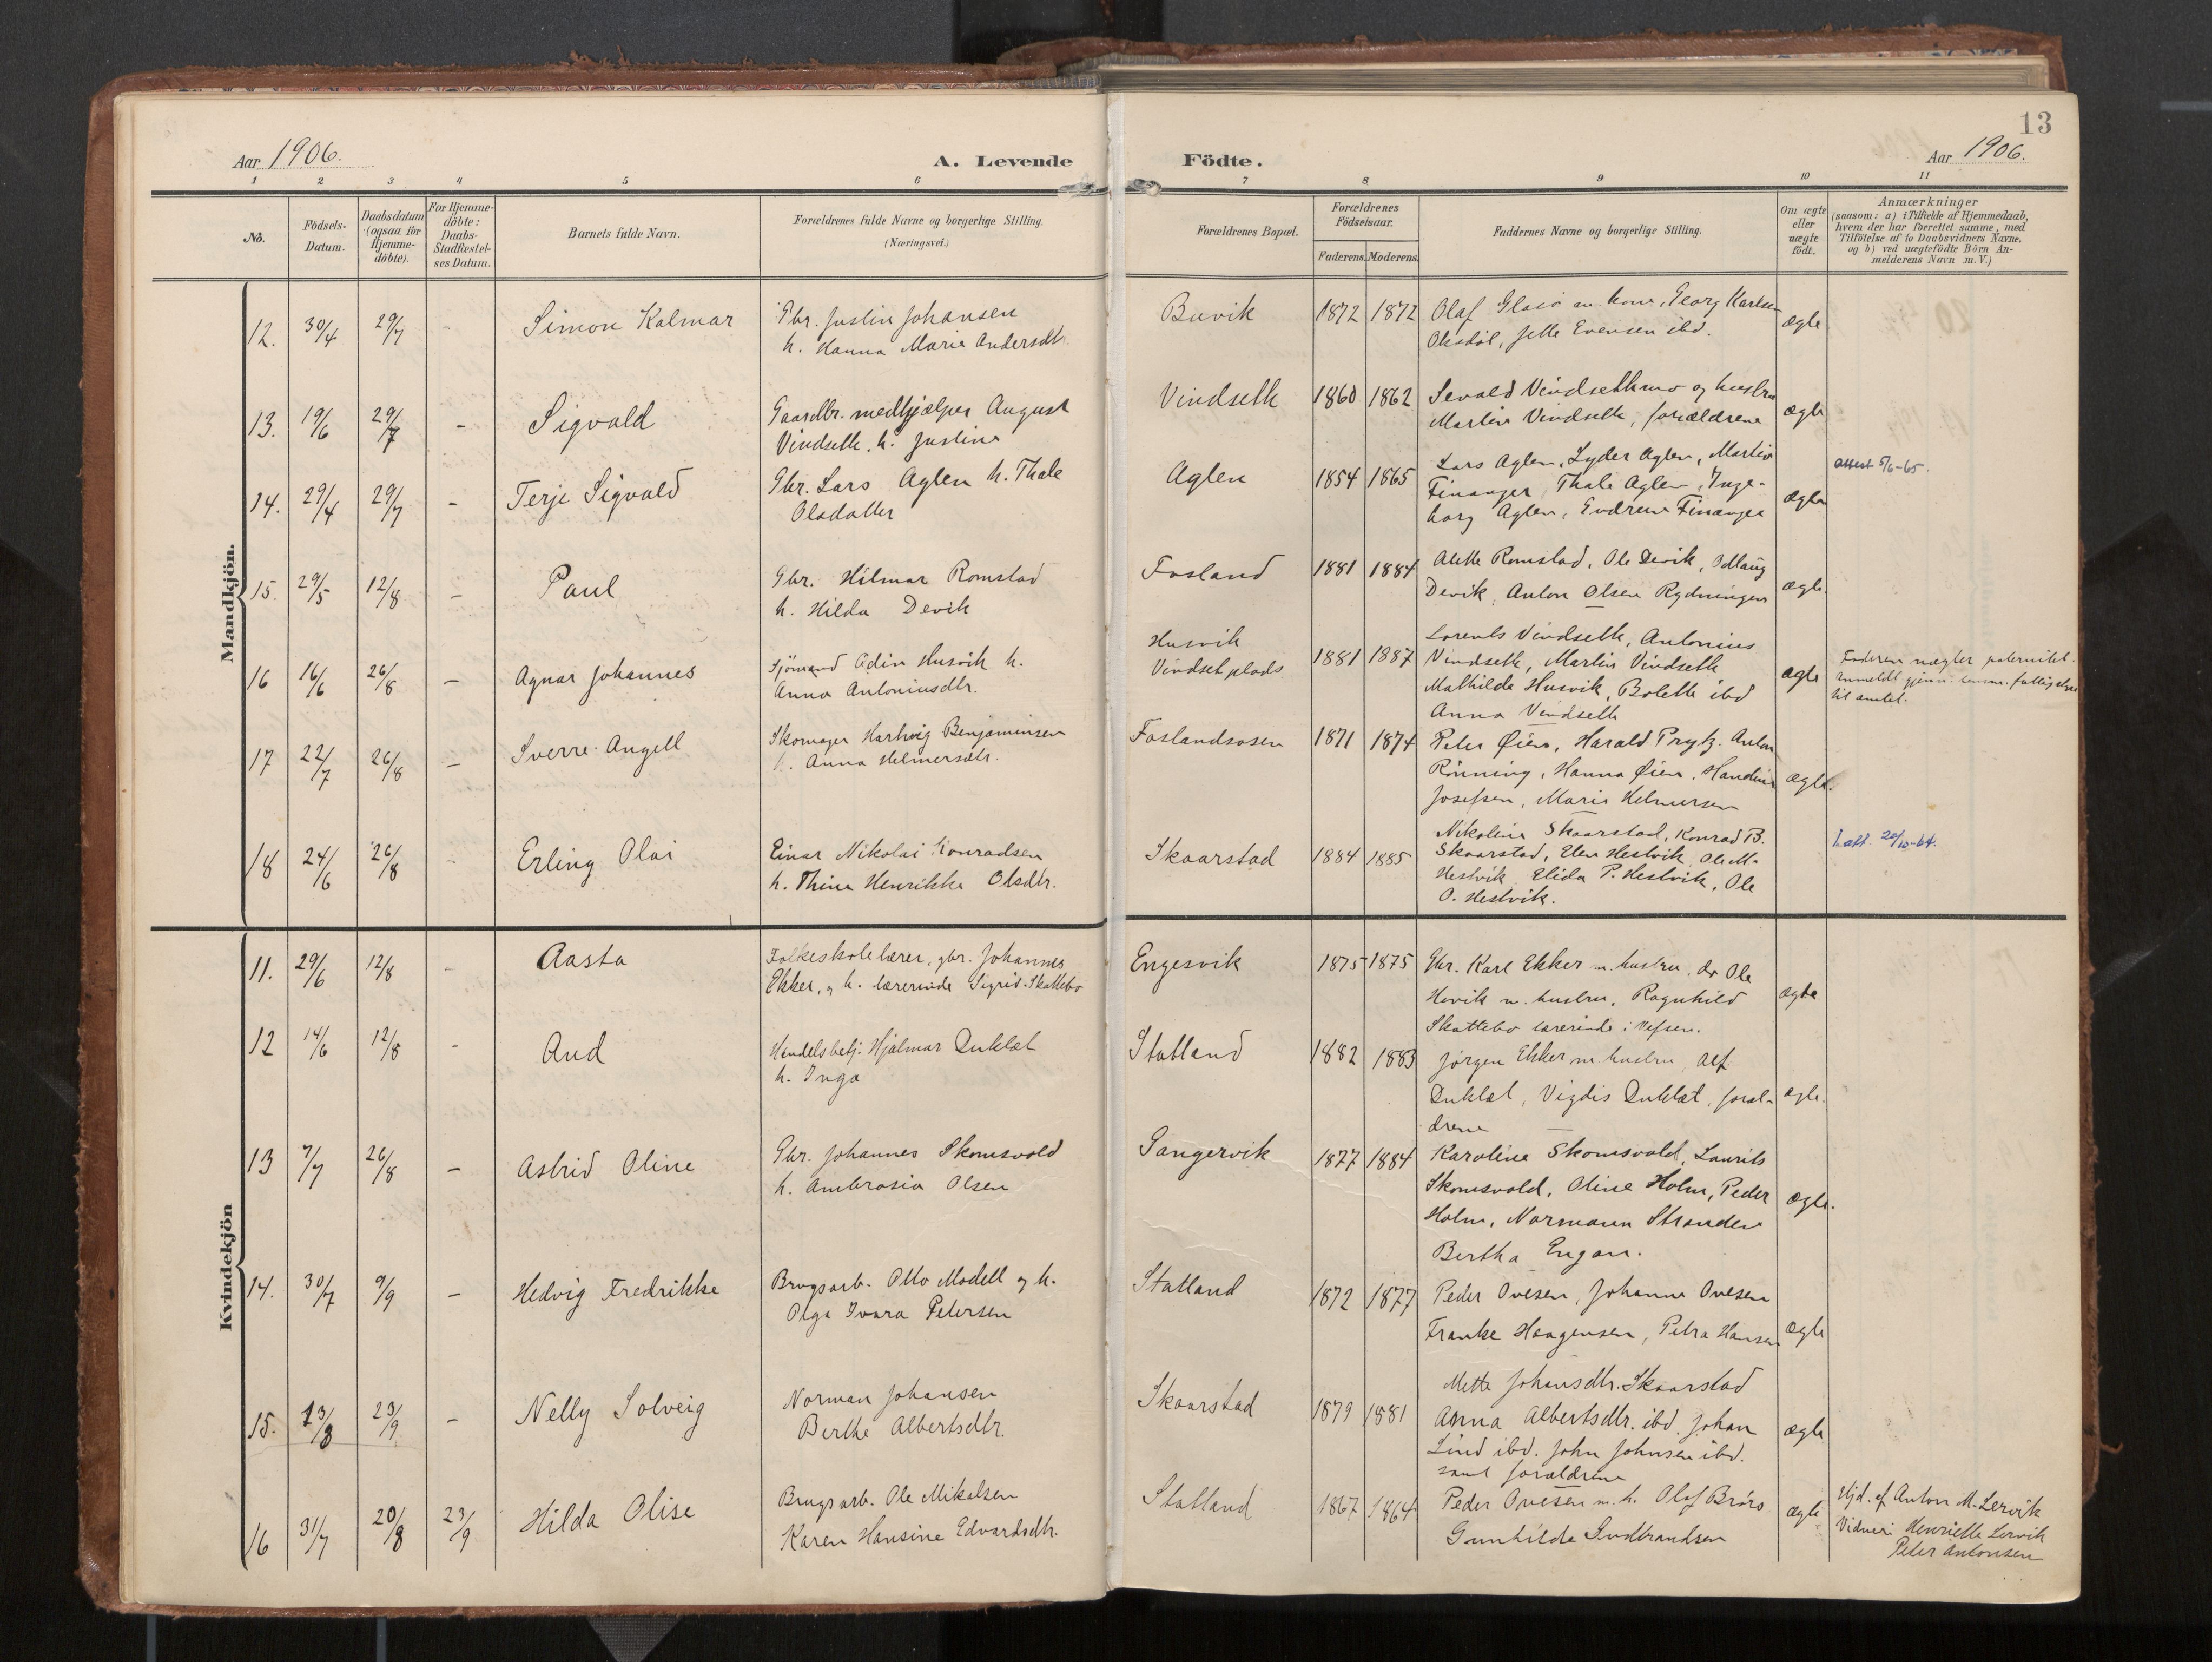 13
Aar 1906.
A. Levende Födte.
Aar 1906.
1 2 3 4 5 6 7 8 9 10 11
No.
Födsels-
Datum.
Daabsdatum
(ogsaa for
Hjemme-
döbte).
For Hjemme-
döbte:
Daabs-
Stadfæstel-
ses Datum.
Barnets fulde Navn.
Forældrenes fulde Navne og borgerlige Stilling.
(Næringsvei.)
Forældrenes Bopæl.
Forældrenes
Födselsaar.
Faderens. Moderens.
Faddernes Navne og borgerlige Stilling.
Om ægte
eller
uægte
födt.
Anmærkninger
(saasom: a) i Tilfælde af Hjemmedaab,
hvem der har forrettet samme, med
Tilföielse af to Daabsvidners Navne,
og b) ved uægtefödte Börn An-
melderens Navn m. V.)
Mandkjön.
12. 30/4 29/7 - Simon Kalmar
Gbr. Justin Johansen
h. Hanna Marie Andersdtr.
Buvik 1872 1872
Olaf Glasö m. kone, Georg Karlsen
Oksdöl, Jette Evensen ibd.
ægte
13. 19/6 29/7 - Sigvald
Gaardbr. medhjælper August
Vindseth. h. Justine
Vindseth 1860 1862
Sevald Vindsethmo og hustru
Martin Vindseth, forældrene
ægte
14. 29/4 29/7 - Terje Sigvald
Gbr. Lars Aglen h. Thale
Olsdatter
Aglen 1854 1865
Lars Aglen, Lyder Aglen, Martin
Finanger, Thale Aglen, Inge-
borg Aglen, Endrine Finanger
ægte
Attest 5/6-65.
15. 29/5 12/8 - Paul
Gbr. Hilmar Romstad
h. Hilda Devik
Fosland 1881 1884
Alette Romstad, Ole Devik, Odlaug
Devik, Anton Olsen Rydningen
ægte.
16 16/6 26/8 - Agnar Johannes
Sjömand Odin Husvik h.
Anna Antoniusdtr.
Husvik
Vindset plads
1881 1887
Lorents Vindseth, Antonius
Vindseth, Martin Vindseth
Mathilda Husvik, Bolette ibd
Anna Vindseth
ægte
Faderen nægter paternitet.
Anmeldt
til amtet.
17 22/7 26/8 - Sverre Angell
Skomager Hartvig Benjaminsen
h. Anna Helmersdtr.
Foslandsosen 1871 1874
Peter Øien, Harald Prytz. Anton
Rönning, Hanna Øien, Handine
Josefsen, Marie Helmersen
ægte.
18 24/6 26/8 - Erling Olai
Einar Nikolai Konradsen
h. Thina Henrikke Olsdtr.
Skaarstad 1884 1885
Nikoline Skaarstad, Konrad B.
Skaarstad, Elen Hestvik, Ole M.
Hestvik, Elida P. Hestvik, Ole
O. Hestvik.
att. 20/10-64.
Kvindekjön
11. 29/6 12/8 - Aasta
Folkeskolelærer, gbr. Johannes
Ekker, og h. lærerinde Sigrid Skattebo
Engesvik 1875 1875
Gbr. Karl Ekker m. hustru, do Ole
Hovik m. hustru, Ragnhild
Skattebo lærerinde i Vefsen.
ægte
12 14/6 12/8 - Aud
Handelsbetj. Hjalmar Duklæt
h. Inga
Statland 1882 1883
Jørgen Ekker m. hustru, Alf
Duklæt, Vigdis Duklæt, foræl-
drene
ægte.
13 7/7 26/8 - Astrid Oline
Gbr. Johannes Skomsvold
h. Ambrosia Olsen
Sangervik 1877 1884
Karoline Skomsvold, Laurits
Skomsvold, Oline Holm, Peder
Holm, Normann Stranden
Bertha Engan.
ægte.
14. 30/7 9/9 - Hedvig Fredrikke
Brugsarb. Otto Modell og h.
Olga Ivara Petersen
Statland 1872 1877
Peder Ovesen, Johanna Ovesen
Frantse Haagensen, Petra Hansen
ægte
15. 13/8 23/9 - Nelly Solveig
Norman Johansen
Berthe Albertsdtr.
Skaarstad 1879 1881
Mette Johansdtr. Skaarstad
Anna Albertsdtr. ibd. Johan
Lind ibd. John Johnsen ibd.
samt forældrene
ægte
16 31/7 20/8 23/9 Hilda Olise
Brugsarb. Ole Mikalsen
Karen Hansine Edvardsdtr.
Statland 1867 1864
Peder Ovesen m. h. Olof Bröro
Gunhilde Gudbrandsen
ægte
Hjd. af Anton M. Lervik
Vidner: Henriette Lervik
Peter Antonsen